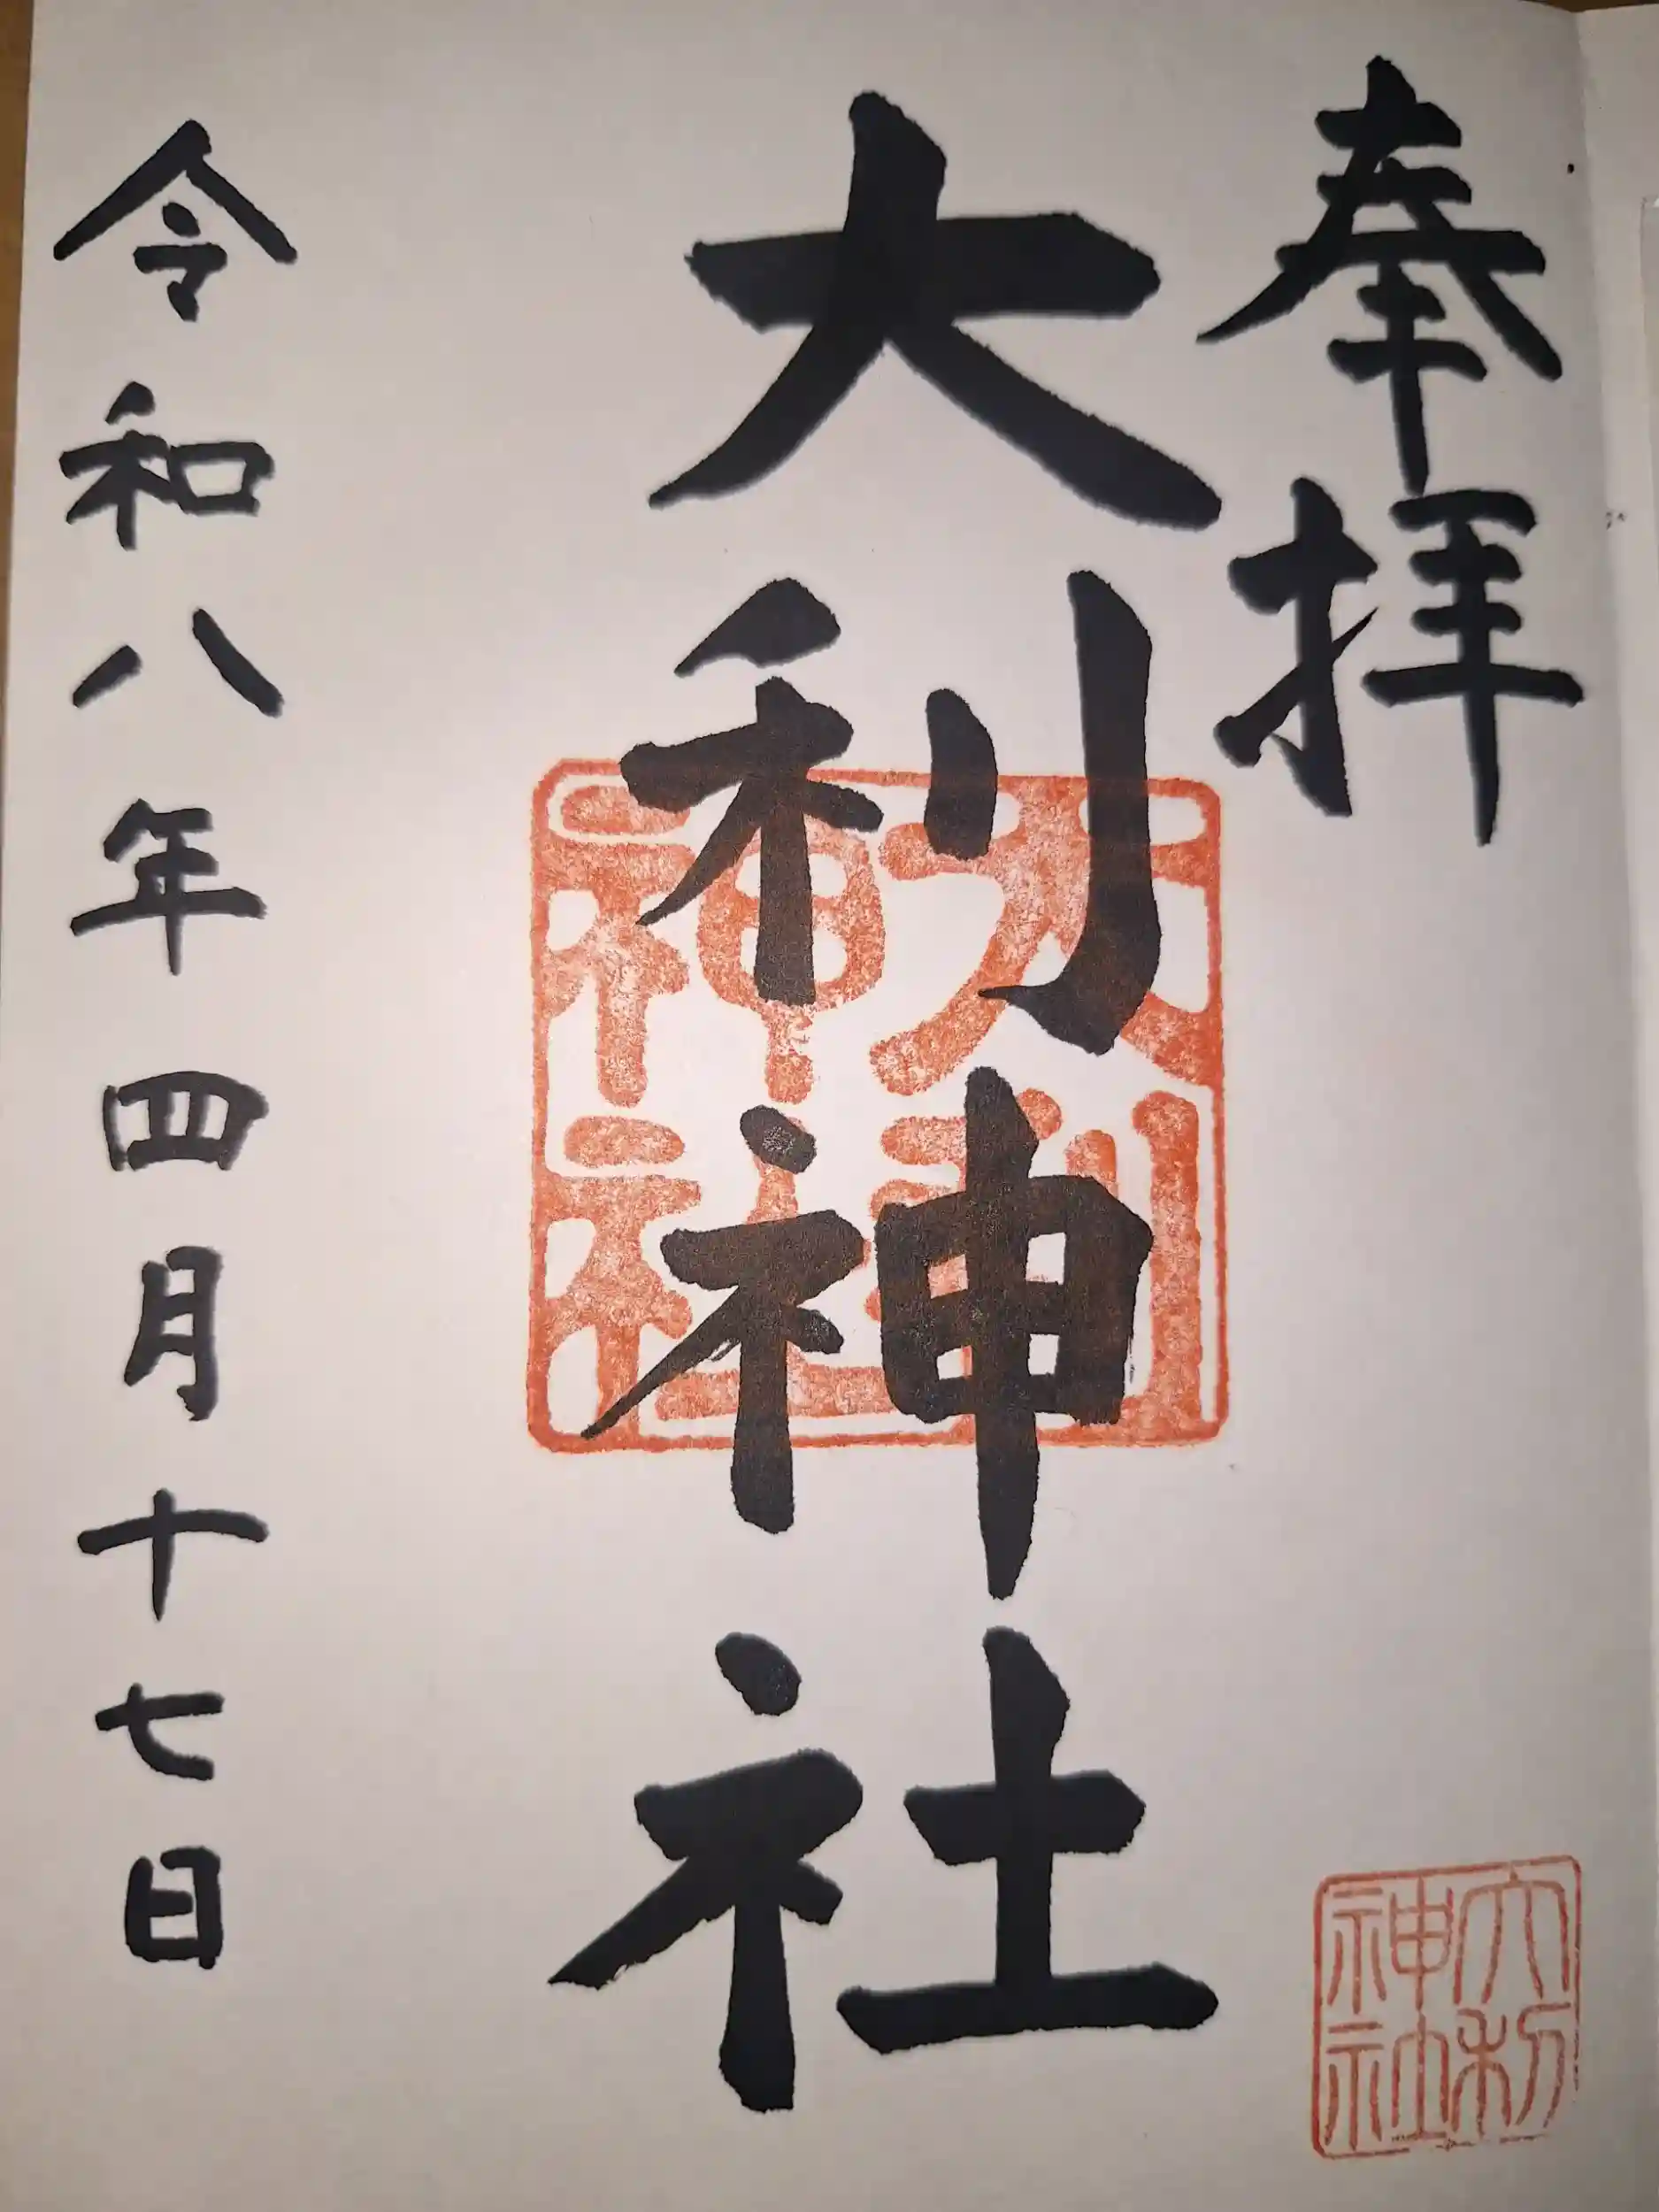 奉拝
大利神社
大利神社
大利神社
令和八年四月十七日